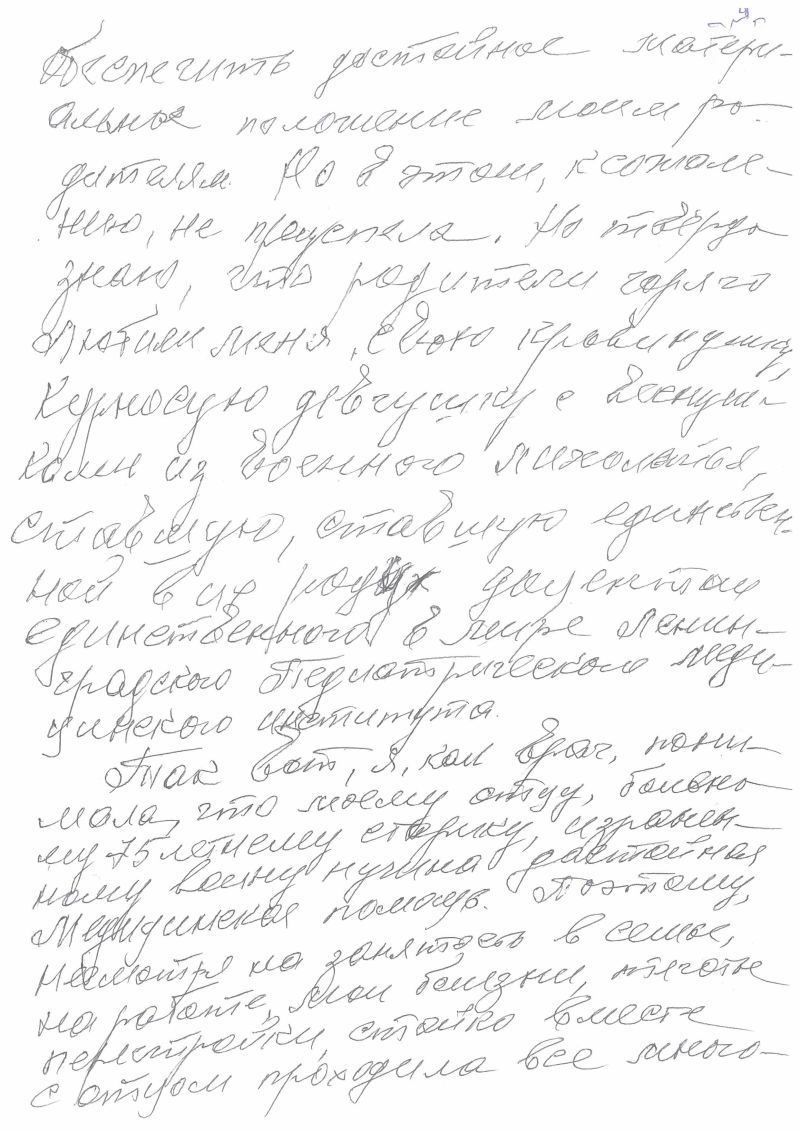 4
обеспечить достойное матери-
альное положение моим ро-
дителям. Но в этом, к сожале-
нию, не преуспела. Но твёрдо
знаю, что родители горячо
любили меня, свою кровинушку,
курносую девчушку с веснуш-
ками из военного лихолетья,
ставшую, ставшую единствен-
ной в их роду доцентом
единственного в мире Ленин-
градского Педиатрического меди-
цинского института.
Так вот, я, как врач, пони-
мала, что моему отцу, больно-
му 75 летнему старику, изранен-
ному воину нужна достойная
медицинская помощь. Поэтому,
несмотря на занятость в семье,
на работе, мои болезни, тяготы
перестройки, стойко вместе
с отцом проходила все много-